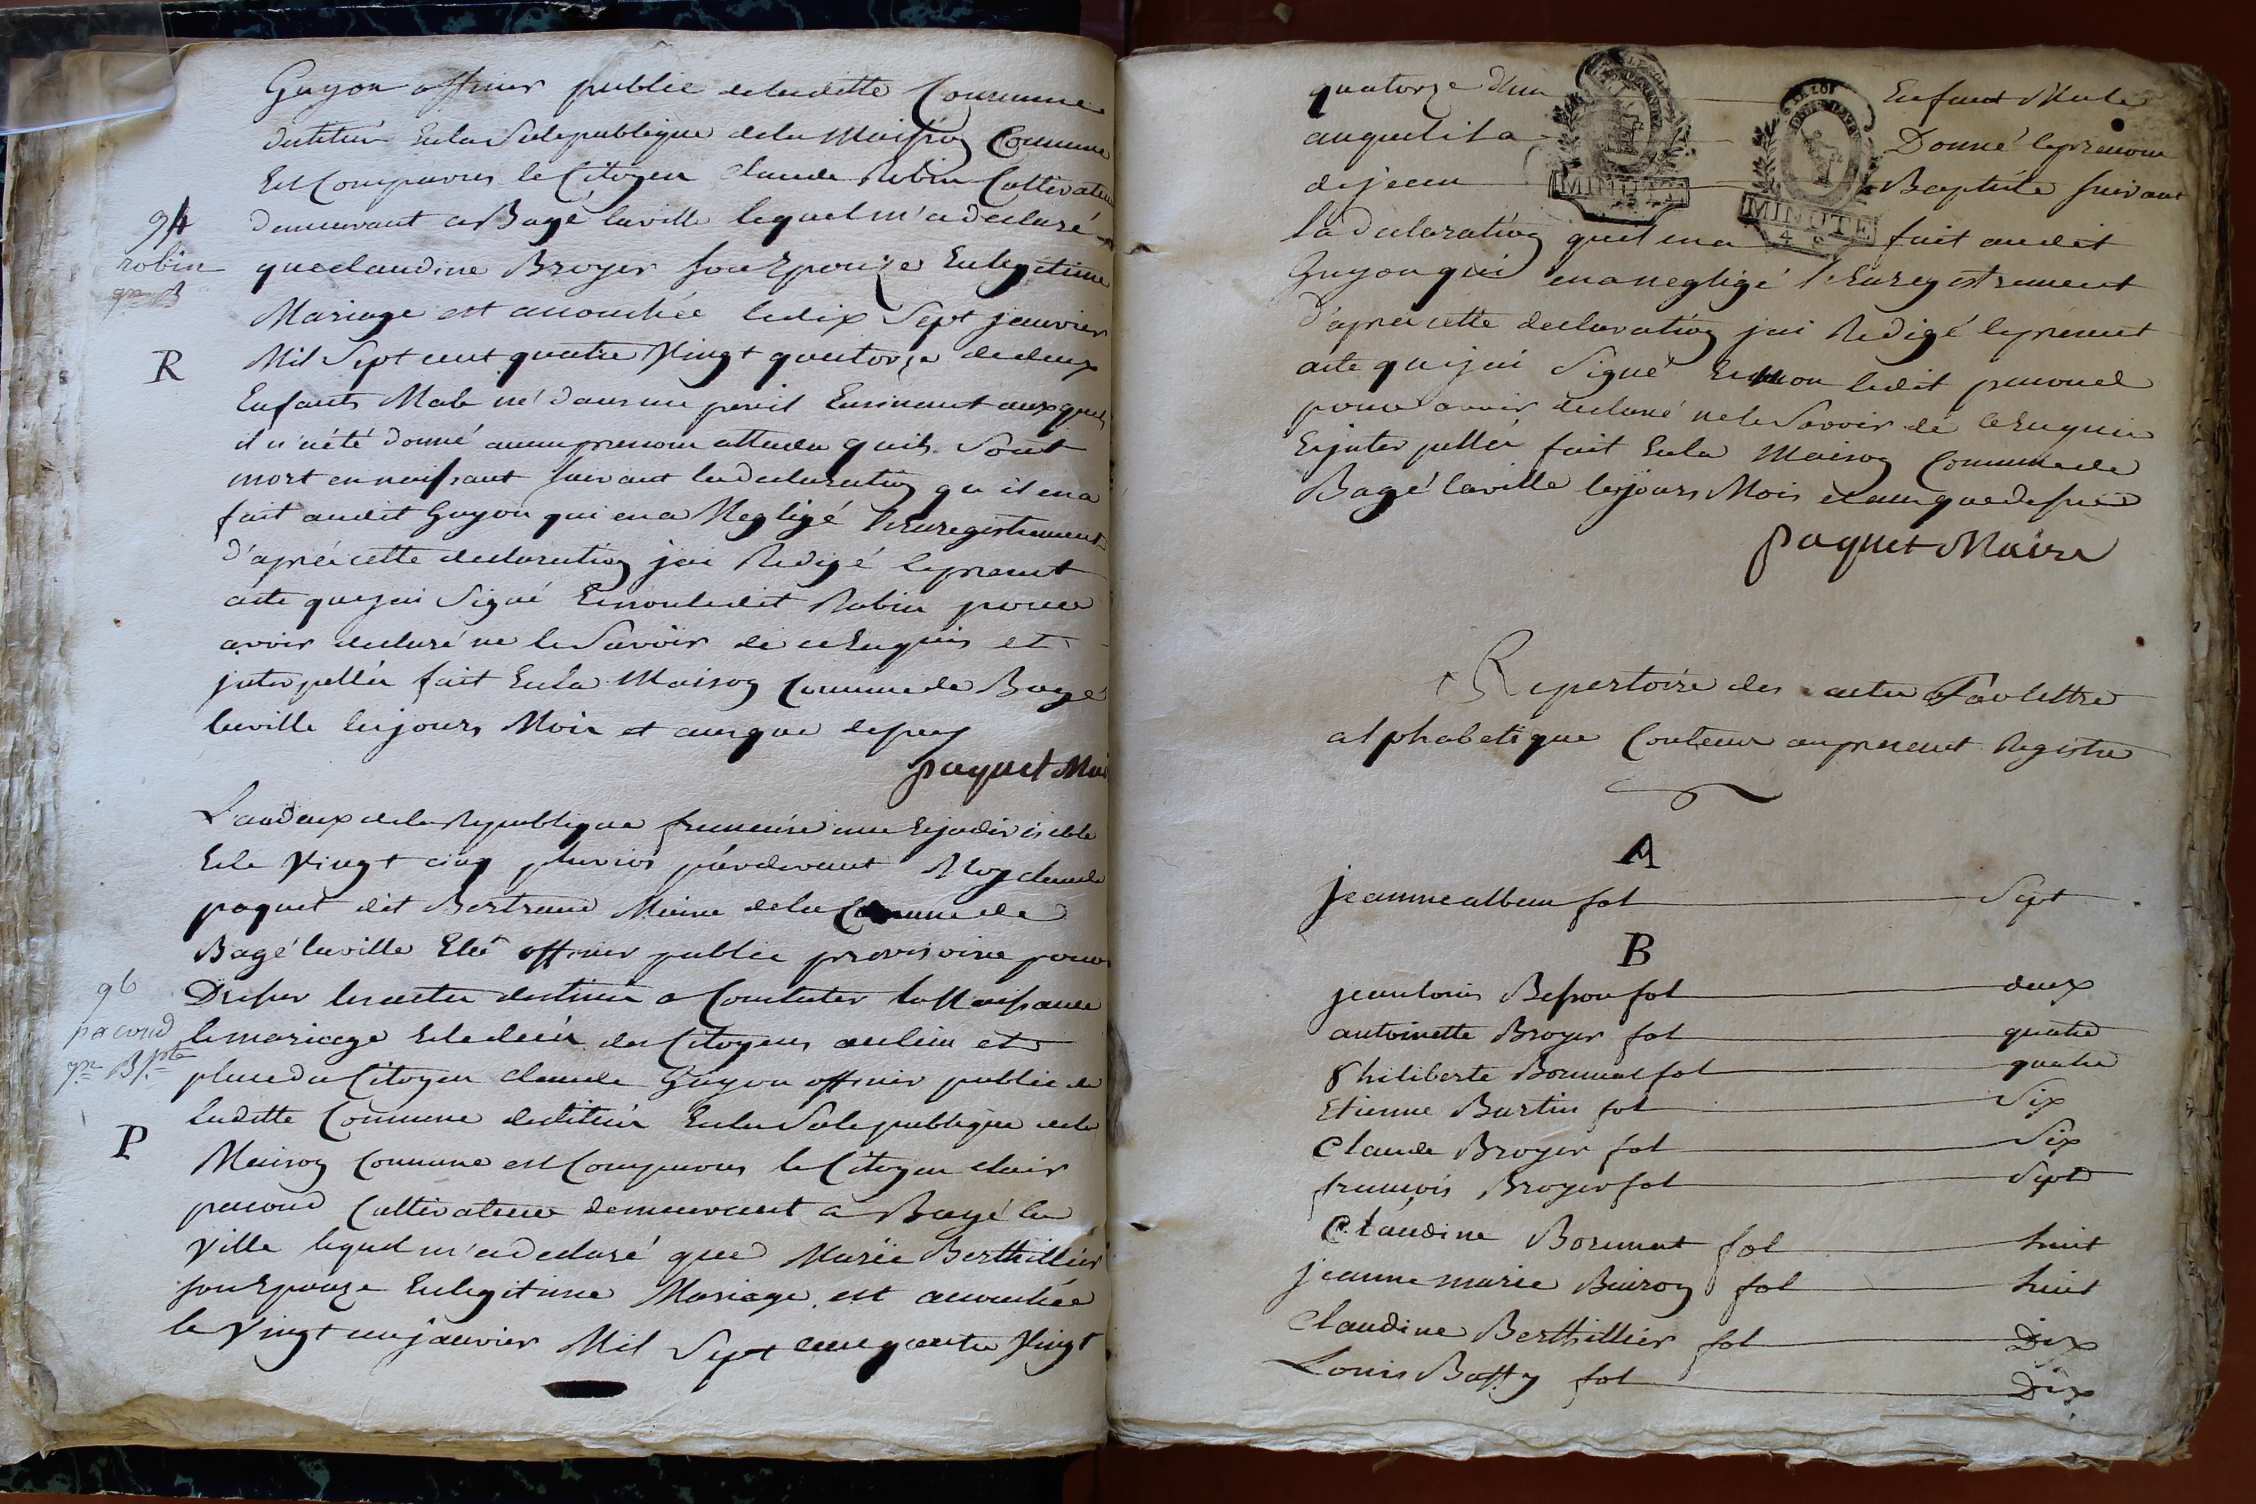 Guyon officier public deladitte Commune
destiné En la Sale publique dela Maison Commune
Est Comparus le Citoyen Claude Robin Cultivateur
demeurant a Bagé laville lequel m'a declaré
94
robin
que claudine Broyer son Epouze En legitime
Mariage est accouchée le dix Sept janvier
R
Mil Sept cent quatre Vingt quatorze de deux
Enfants Male né dans un
il n'a été donné aucun prenom attendu quils Sont
mort en naissant suivant la declaration qu il en a
fait audit Guyon qui en a Negligé l'Enregistrement
d'aprés cette declaration jai Redigé le present
acte que jai Signé Et non ledit Robin pour
avoir declaré ne le Savoir de ce Enquis et
jnterpellé fait En la Maison Commune de Bagé
laville les jours Mois et an que dessus
paquet Mai
L'an deux de la Republique francaise une Et jndivisible
Et le Vingt cinq pluvios pardevant Moy claude
paquet dit Bertrand Maire de la Commune de
Bagé laville Elû officier public provisoire pour
96
Dresser les actes destinés a Constater la Naissance
pacoud
le mariage Et le decés des Citoyens au lieu et
place du Citoyen claude Guyon officier public de
laditte Commune destiné En la Sale publique de la
P
Maison Commune est Comparus le Citoyen clair
pacoud Cultivateur demeurant a Bagé la
ville lequel m'a declaré que Marie Berthillier
son Epouze En legitime Mariage est accouchée
le Vingt un janvier Mil Sept cens quatre Vingt
quatorze d'un Enfant Male
auquel il a Donné le prenom
de jean Baptiste suivant
la declaration quil en a fait audit
Guyon qui en a negligé l'Enregistrement
d'aprés cette declaration jai Redigé le present
acte que jai Signé Et non ledit pacoud
pour avoir declaré ne le Savoir de ce Enquis
Et jnterpellé fait En la Maison Commune de
Bagé laville les jours Mois et an que dessus
paquet Maire
Repertoire des actes par lettre
alphabetique Contenu au present Registre
A
jeanne alban fol Sept
B
jean louis Besson fol deux
antoinette Broyer fol quatre
philiberte Bonnat fol quatre
Etienne Burtin fol Six
Claude Broyer fol Six
francois Broyer fol Sept
Claudine Borunat fol huit
jeanne marie Buiron fol huit
Claudine Berthillier fol Dix
Louis Batty fol Dix
MINUTE
MINUTE